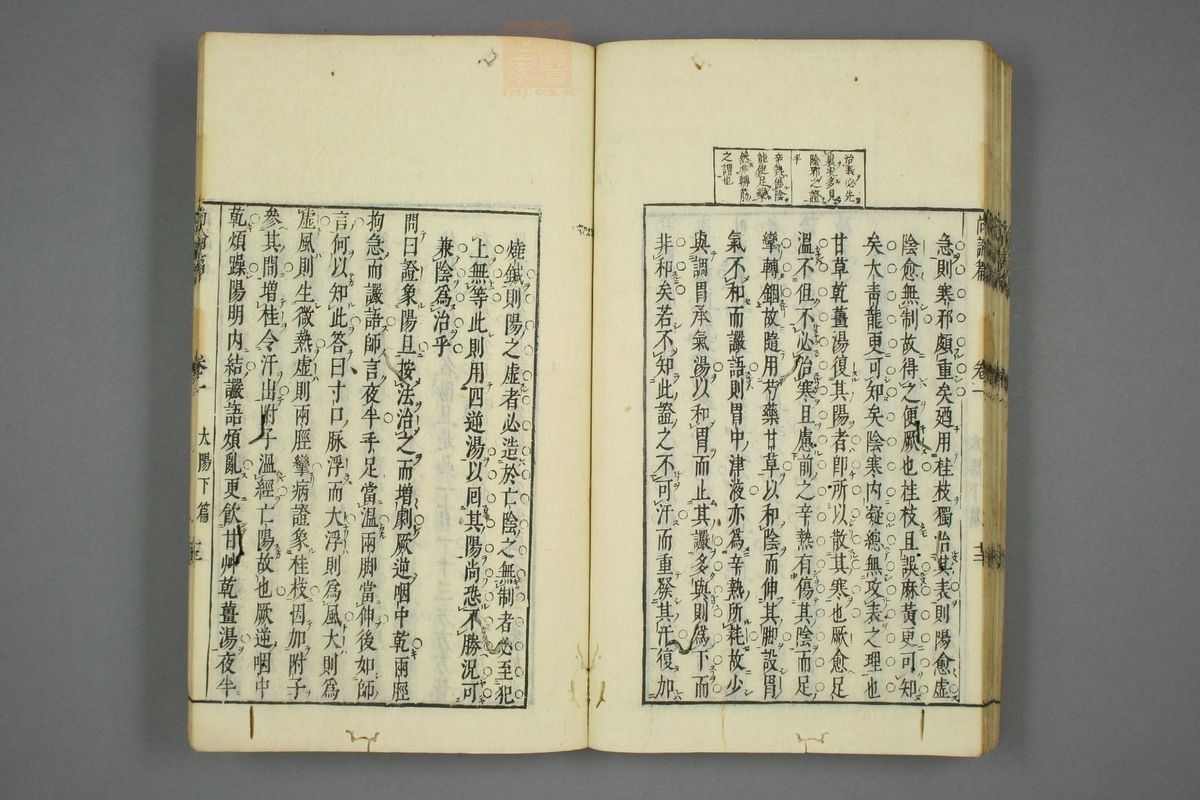 治表必先
裏也多見
陰邪之證
乎
辛熱傷陰
能使足攣
然非轉筋
之謂也
急則寒邪頗重矣廼用桂枝獨治其表則陽愈虛
陰愈無制故得之便厥也桂枝且誤麻黃更可知
矣大青龍更可知矣陰寒內凝總無攻表之理也
甘草乾薑湯復其陽者即所以散其寒也厥愈足
溫不但不必治寒且慮前之辛熱有傷其陰而足
攣轉錮故隨用芍藥甘草以和陰而伸其脚設胃
氣不和而讝語則胃中津液亦爲辛熱所耗故少
與調胃承氣湯以和胃而止其讝多與則爲下而
非和矣若不知此證之不可汗而重發其汗復加
卷一
燒鍼則陽之虛者必造於亡陰之無制者必至犯
上無等此則用四逆湯以回其陽尚恐不勝況可
兼陰爲治乎
問曰證象陽旦按法治之而增劇厥逆咽中乾兩脛
拘急而讝語師言夜半手足當溫兩脚當伸後如師
言何以知此答曰寸口脉浮而大浮則爲風大則爲
虛風則生微熱虛則兩脛攣病證象桂枝因加附子
參其間增桂令汗出附子溫經亡陽故也厥逆咽中
乾煩躁陽明內結讝語煩亂更飲甘艸乾薑湯夜半
卷一
太陽下篇